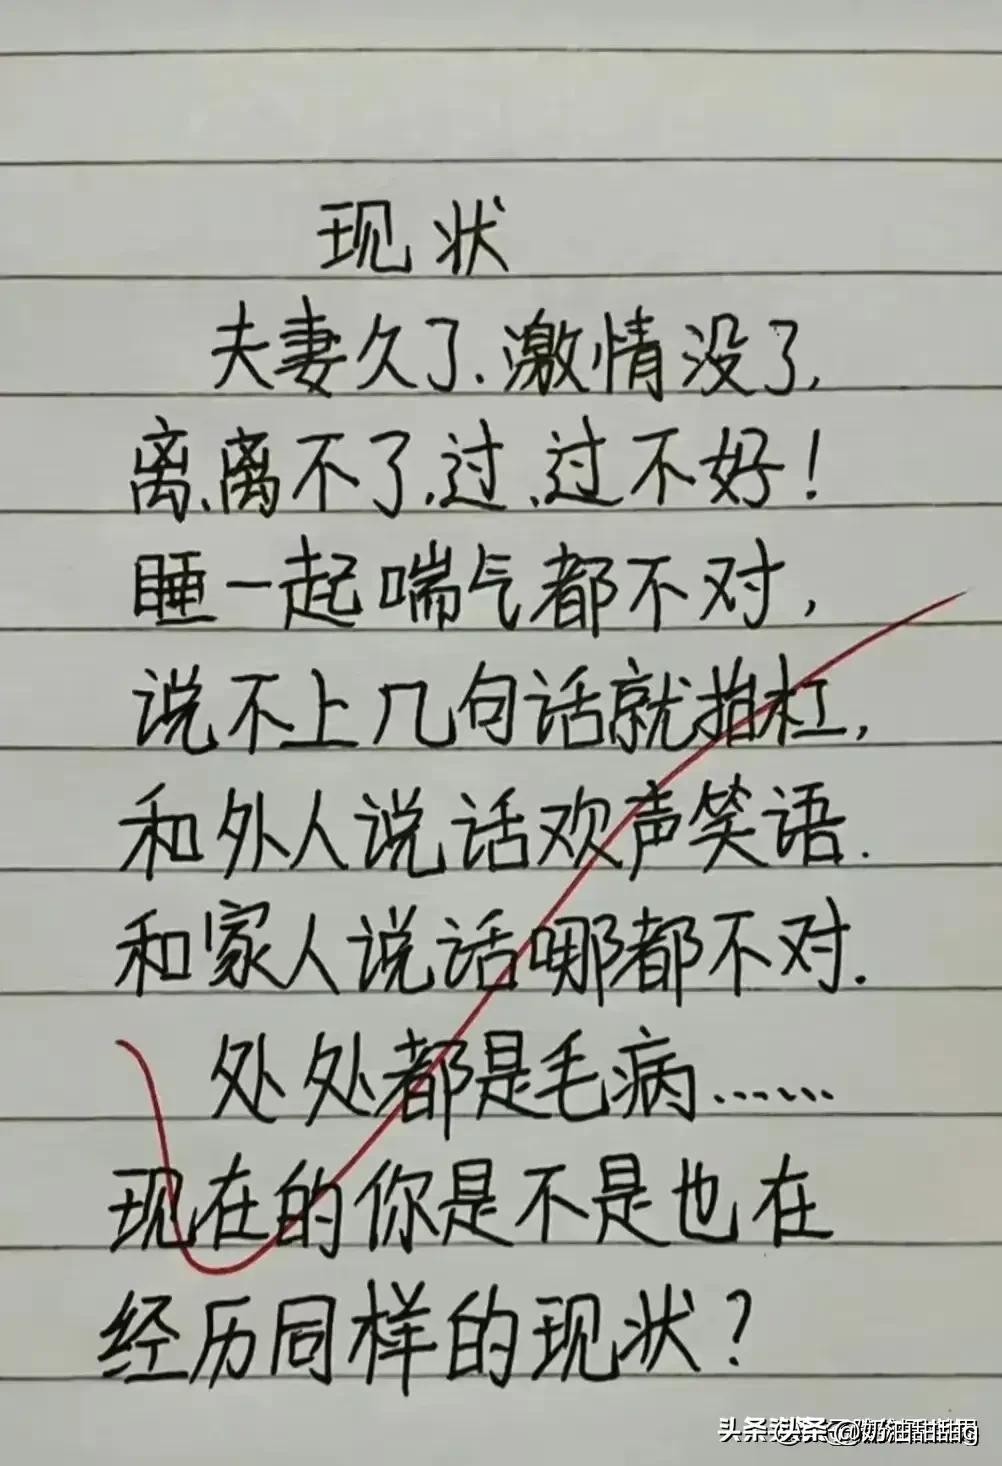 现状
夫妻久了、激情没了,
离、离不了,过、过不好!
睡一起喘气都不对,
说不上几句话就抬杠,
和外人说话欢声笑语.
和家人说话哪都不对.
处处都是毛病……
现在的你是不是也在
经历同样的现状?
头条